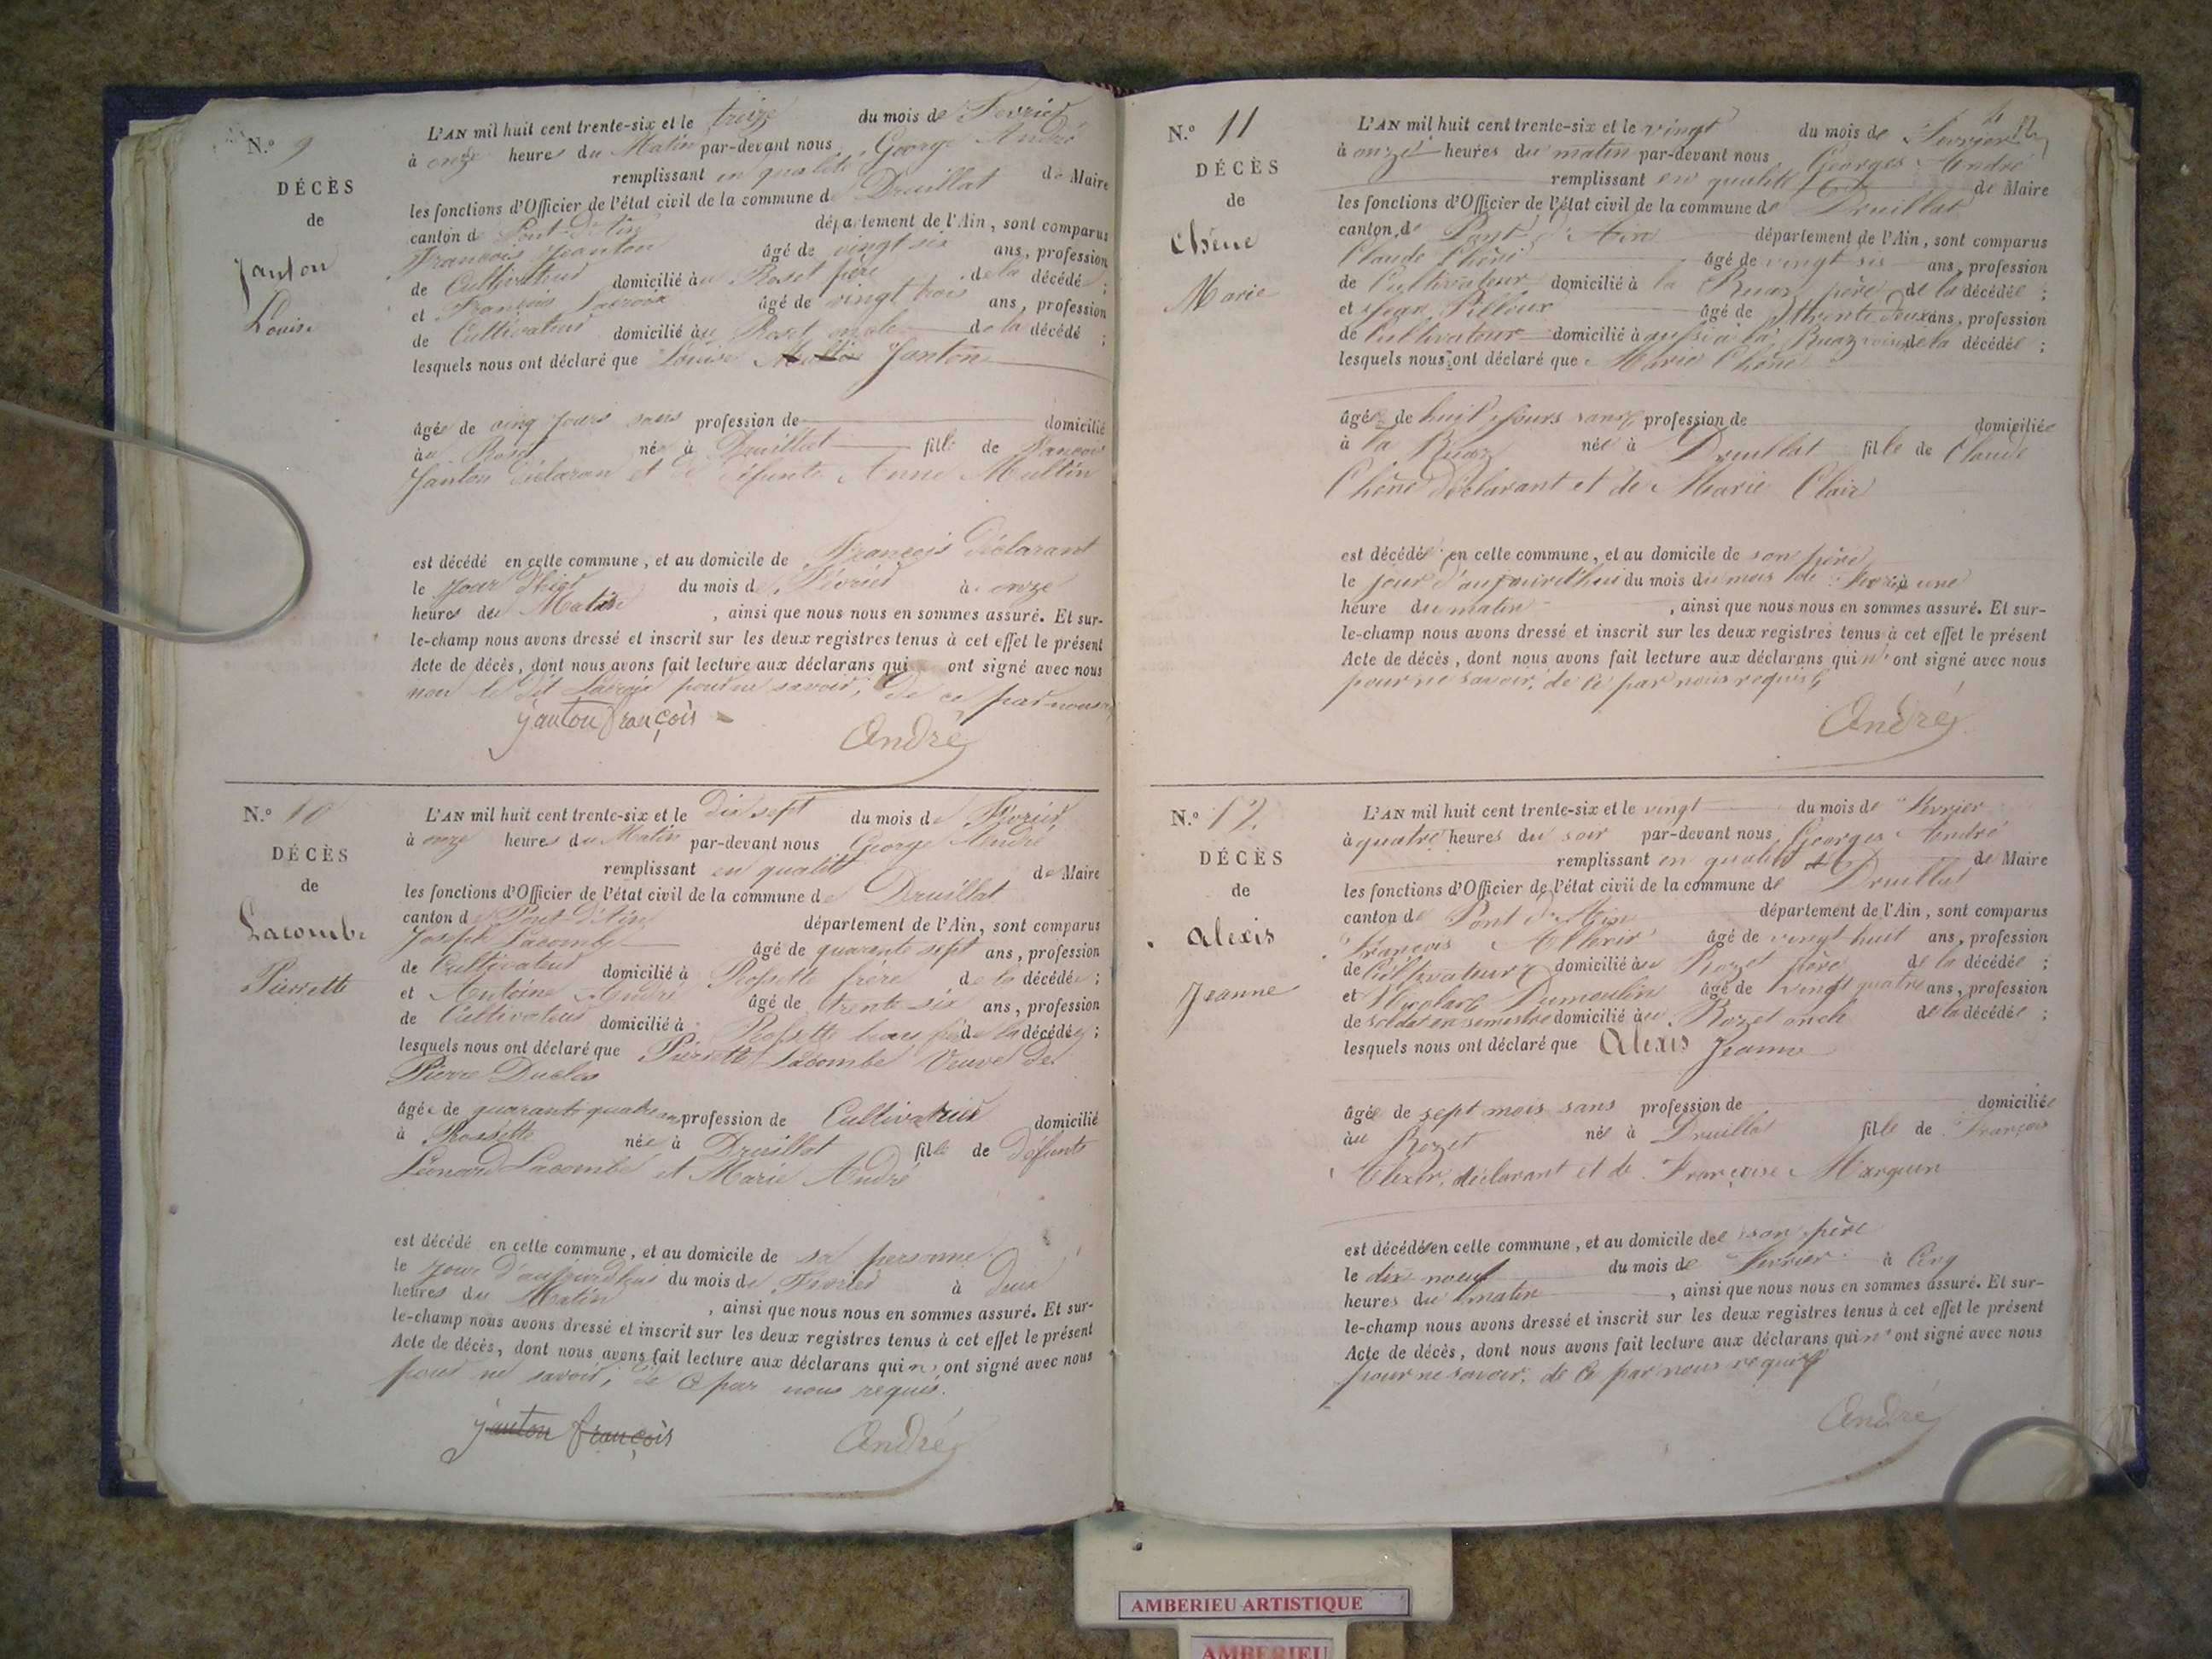 N.° 9
DÉCÈS
de
Janton
Louise
L'AN mil huit cent trente-six et le treize du mois de Fevrier
à onze heures du Matin par-devant nous George André
remplissant en qualité de Maire
les fonctions d'Officier de l'état civil de la commune de Druillat
canton de Pont-d'Ain département de l'Ain, sont comparus
François Janton âgé de vingt six ans, profession
de Cultivateur domicilié au Roset père de la décédé ;
et François Lacroix âgé de vingt trois ans, profession
de Cultivateur domicilié au Roset oncle de la décédé ;
lesquels nous ont déclaré que Louise Janton
âgée de cinq jours sans profession de domicilié
au Roset née à Druillat fille de François
Janton déclaran et de défunte Anne Multin
est décédé en cette commune, et au domicile de François déclarant
le jour d'hier du mois de Février à onze
heures du Matin, ainsi que nous nous en sommes assuré. Et sur-
le-champ nous avons dressé et inscrit sur les deux registres tenus à cet effet le présent
Acte de décès, dont nous avons fait lecture aux déclarans qui ont signé avec nous
non le dit Lacroix pour ne savoir, de ce par nous
janton françois
André
N.° 10
DÉCÈS
de
Lacombe
Pierrette
L'AN mil huit cent trente-six et le dix sept du mois de Février
à onze heures du Matin par-devant nous George André
remplissant en qualité de Maire
les fonctions d'Officier de l'état civil de la commune de Druillat
canton de Pont-d'Ain département de l'Ain, sont comparus
Joseph Lacombe âgé de quarante sept ans, profession
de Cultivateur domicilié à Rossette frère de la décédée ;
et Antoine André âgé de trente six ans, profession
de Cultivateur domicilié à Rossette beau de la décédée ;
lesquels nous ont déclaré que Pierrette Lacombe Veuve de
Pierre Duclos
âgée de quarante quatre ans profession de Cultivatrice domicilié
à Rossette née à Druillat fille de défunts
Léonard Lacombe et Marie André
est décédé en cette commune, et au domicile de sa personne
le jour d'aujourd'hui du mois de Février à deux
heures du Matin, ainsi que nous nous en sommes assuré. Et sur-
le-champ nous avons dressé et inscrit sur les deux registres tenus à cet effet le présent
Acte de décès, dont nous avons fait lecture aux déclarans qui n' ont signé avec nous
pour ne savoir, de ce par nous requis.
janton françois
André
N.° 11
DÉCÈS
de
Chêne
Marie
L'AN mil huit cent trente-six et le vingt du mois de Fevrier
à onze heures du matin par-devant nous Georges André
remplissant en qualité de Maire
les fonctions d'Officier de l'état civil de la commune de Druillat
canton de Pont d'Ain département de l'Ain, sont comparus
Claude Chêne âgé de vingt six ans, profession
de Cultivateur domicilié à la Ruaz père de la décédée ;
et Jean Pilloux âgé de trente deux ans, profession
de Cultivateur domicilié à aussi à la Ruaz voisin de la décédée ;
lesquels nous ont déclaré que Marie Chêne
âgée de huit jours sans profession de domiciliée
à la Ruaz née à Druillat fille de Claude
Chêne déclarant et de Marie Clair
est décédée en cette commune, et au domicile de son père
le jour d'aujourd'hui du mois du mois de Fevrier à une
heure du matin, ainsi que nous nous en sommes assuré. Et sur-
le-champ nous avons dressé et inscrit sur les deux registres tenus à cet effet le présent
Acte de décès, dont nous avons fait lecture aux déclarans qui n' ont signé avec nous
pour ne savoir, de ce par nous requis
André
N.° 12
DÉCÈS
de
Alexis
Jeanne
L'AN mil huit cent trente-six et le vingt du mois de Fevrier
à quatre heures du soir par-devant nous Georges André
remplissant en qualité de Maire
les fonctions d'Officier de l'état civil de la commune de Druillat
canton de Pont d'Ain département de l'Ain, sont comparus
François âgé de vingt huit ans, profession
de Cultivateur domicilié au Rozet père de la décédée ;
et Dumoulin âgé de vingt quatre ans, profession
de soldat en semestre domicilié au Rozet oncle de la décédée ;
lesquels nous ont déclaré que Alexis Jeanne
âgée de sept mois sans profession de domiciliée
au Rozet née à Druillat fille de François
déclarant et de Françoise Marguin
est décédée en cette commune, et au domicile de son père
le dix neuf du mois de Fevrier à Cinq
heures du matin, ainsi que nous nous en sommes assuré. Et sur-
le-champ nous avons dressé et inscrit sur les deux registres tenus à cet effet le présent
Acte de décès, dont nous avons fait lecture aux déclarans qui n' ont signé avec nous
pour ne savoir, de ce par nous requis
André
AMBERIEU ARTISTIQUE
AMBERIEU